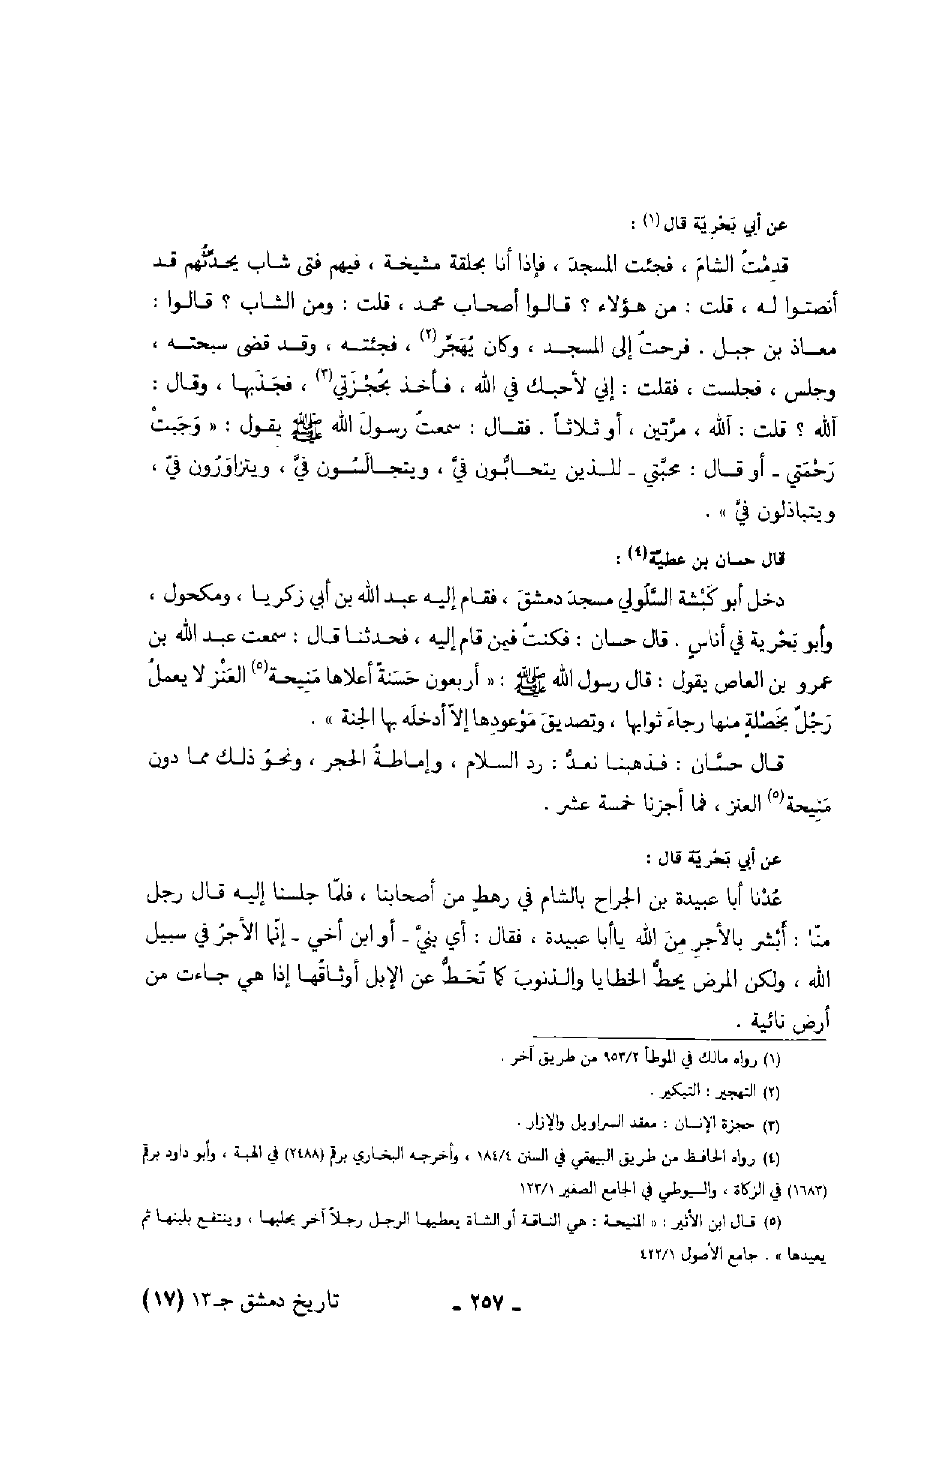 عن أبي بَحْرِيّة قال(١) :
قدمْتُ الشامَ ، فجئت المسجدَ ، فإذا أنا بحلقة مشيخة ، فيهم فتى شاب يحدّثُهم قد
أنصتوا له ، قلت : من هؤلاء ؟ قالوا أصحاب محمد ، قلت : ومن الشاب ؟ قالوا :
معاذ بن جبل . فرحتُ إلى المسجد ، وكان يُهَجِّر(٢) ، فجئته ، وقد قضى سبحته ،
وجلس ، فجلست ، فقلت : إني لأحبك في الله ، فأخذ بحُجْزَتي(٣) ، فجَذَبها ، وقال :
آلله ؟ قلت : آلله ، مرّتين ، أو ثلاثاً . فقال : سمعتُ رسولَ الله ﷺ يقول : « وَجَبَتْ
رَحْمَتي ـ أو قال : محبَّتي ـ للذين يتحابُّون فيَّ ، ويتجالَسُون فيَّ ، ويتزاوَرُون فيّ ،
ويتباذلون فيَّ » .
قال حسان بن عطيّة(٤) :
دخل أبو كَبْشة السَّلُولي مسجدَ دمشقَ ، فقام إليه عبد الله بن أبي زكريا ، ومكحول ،
وأبو بَحْرية في أناسٍ . قال حسان : فكنتُ فيمن قام إليه ، فحدثنا قال : سمعت عبد الله بن
عمرو بن العاص يقول : قال رسول الله ﷺ : « أربعون حَسَنةً أعلاها مَنِيحة(٥) العَنْز لا يعملُ
رَجُلٌ بخَصْلةٍ منها رجاءَ ثوابها ، وتصديقَ مَوْعودِها إلاّ أدخلَه بها الجنة » .
قال حسَّان : فذهبنا نعدُّ : رد السلام ، وإماطةُ الحجر ، ونحوُ ذلك مما دون
مَنِيحة(٥) العنز ، فما أجزنا خمسة عشر .
عن أبي بَحْريّة قال :
عُدْنا أبا عبيدة بن الجراح بالشام في رهطٍ من أصحابنا ، فلمّا جلسنا إليه قال رجل
منّا : أَبْشر بالأجرِ مِنَ الله ياأبا عبيدة ، فقال : أي بنيّ ـ أو ابن أخي ـ إنّما الأجرُ في سبيل
الله ، ولكن المرض يحطُّ الخطايا والذنوبَ كما تُحَطُّ عن الإبل أوثاقُها إذا هي جاءت من
أرض نائية .
(١) رواه مالك في الموطأ ٩٥٣/٢ من طريق آخر .
(٢) التهجير : التبكير .
(٣) حجزة الإنسان : معقد السراويل والإزار .
(٤) رواه الحافظ من طريق البيهقي في السنن ١٨٤/٤ ، وأخرجه البخاري برقم (٢٤٨٨) في الهبة ، وأبو داود برقم
(١٦٨٣) في الزكاة ، والسيوطي في الجامع الصغير ١٢٣/١
(٥) قال ابن الأثير : « المنيحة : هي الناقة أو الشاة يعطيها الرجل رجلاً آخر يحلبها ، وينتفع بلبنها ثم
يعيدها » . جامع الأصول ٤٢٢/١
ـ ٢٥٧ ـ تاريخ دمشق جـ١٣ (١٧)